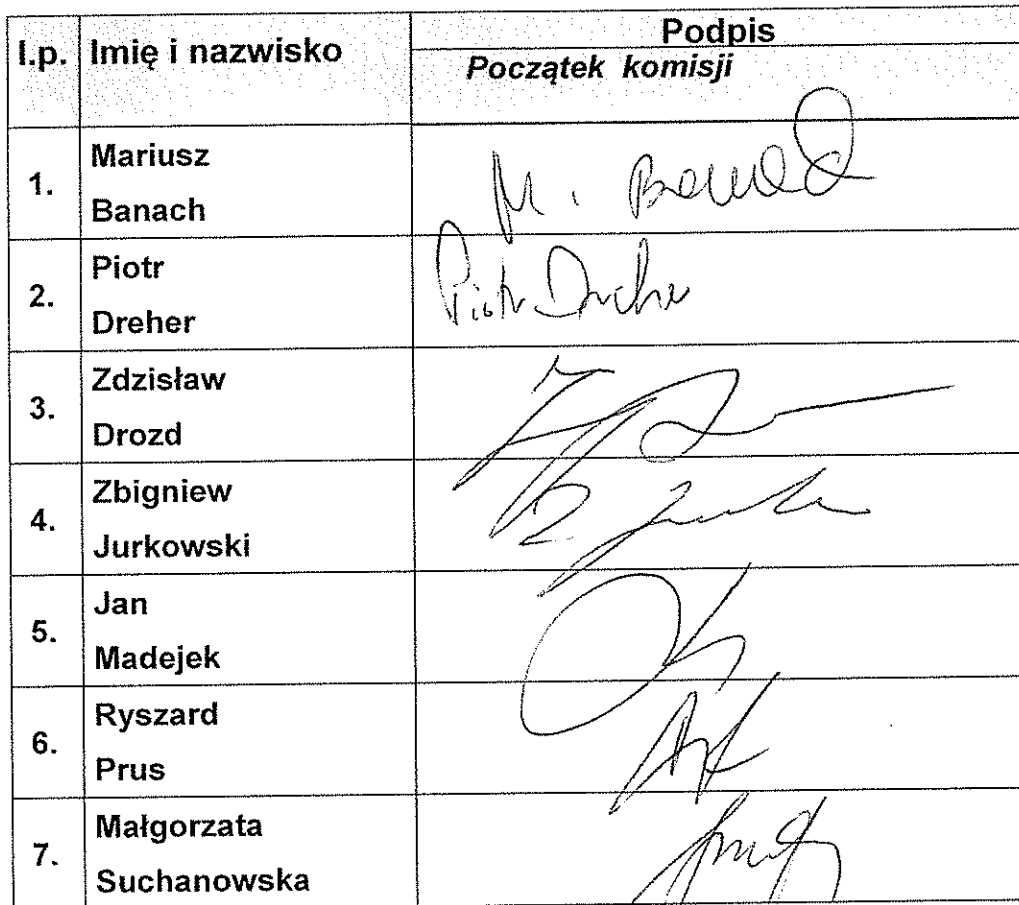 l.p. Imię i nazwisko Podpis
Początek komisji
1. Mariusz
Banach M. Banach
2. Piotr
Dreher Piotr Dreher
3. Zdzisław
Drozd
4. Zbigniew
Jurkowski
5. Jan
Madejek
6. Ryszard
Prus
7. Małgorzata
Suchanowska